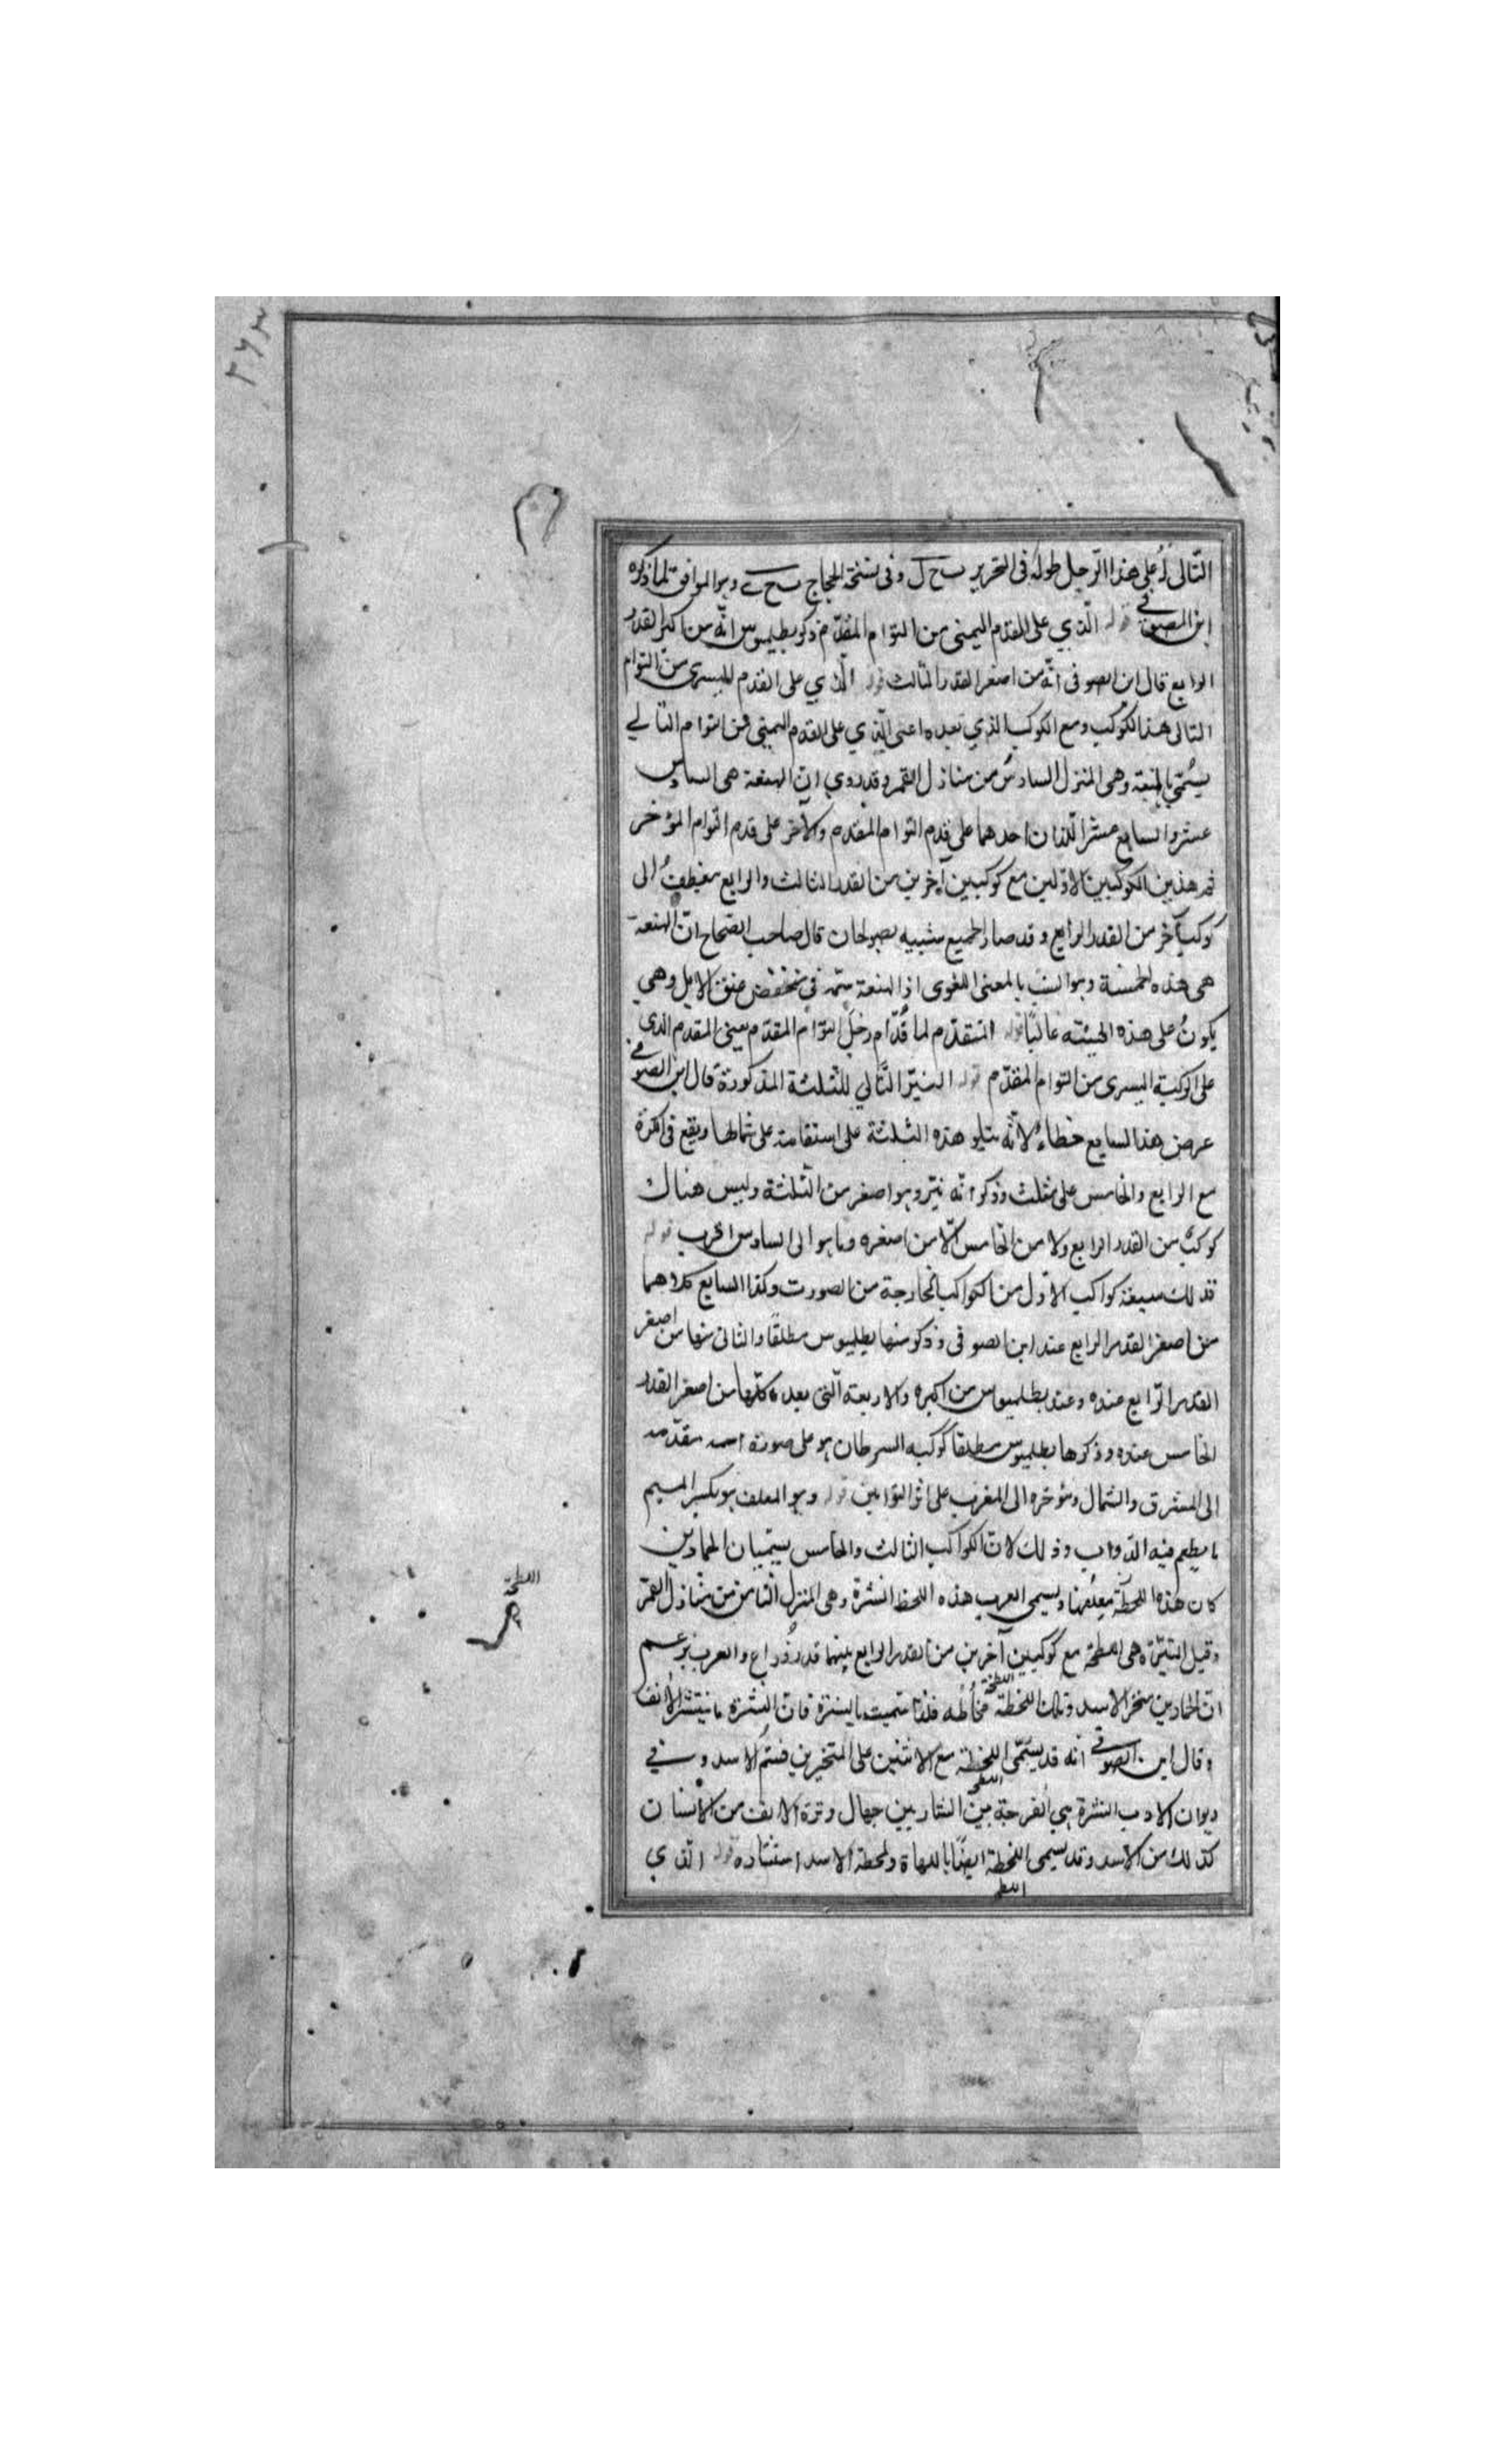 التالى له على هذا الرجل طوله فى التحرير ب ح ل وفى نسخة الحجاج ب ح ى وهو الموافق لما ذكره
ابن الصوفى قوله الذي على القدم اليمنى من التوام المقدم ذكر بطليموس انه من اكبر القدر
الرابع قال ابن الصوفى انه من اصغر القدر الثالث قوله الذي على القدم اليسرى من التوام
التالى هذا الكوكب ومع الكوكب الذي بعده اعنى الذي على القدم اليمنى من التوام التالي
يسمى بالهنعة وهى المنزل السادس من منازل القمر وقد روي ان الهنعة هى السادس
عشر والسابع عشر اللذان احدهما على قدم التوام المقدم والآخر على قدم التوام المؤخر
ثم هذين الكوكبين الاولين مع كوكبين آخرين من القدر الثالث والرابع منعطف الى
كوكب آخر من القدر الرابع وقد صار الجميع شبيه بصولجان قال صاحب الصحاح ان الهنعة
هى هذه الخمسة وهو انسب بالمعنى اللغوى اذ الهنعة سمة فى منخفض عنق الابل وهي
يكون على هذه الهيئة غالبًا قوله المتقدم لما قدام رجل التوام المقدم يعنى المقدم الذى
على الركبة اليسرى من التوام المقدم قوله النير التالي للثلثة المذكورة قال ابن الصوفى
عرض هذا السابع خطاء لانه يتلو هذه الثلثة على استقامة على شمالها ويقع فى الكرة
مع الرابع والخامس على مثلث وذكر انه نير وهو اصغر من الثلثة وليس هناك
كوكب من القدر الرابع ولا من الخامس الا من اصغره وما هو الى السادس اقرب قوله
فذلك سبعة كواكب الاول من الكواكب الخارجة من الصورت وكذا السابع كلاهما
من اصغر القدر الرابع عند ابن الصوفى وذكر منها بطليوس مطلقًا والثانى منها من اصغر
القدر الرابع عنده وعند بطلميوس من اكبره والاربعة التى بعده كلها من اصغر القدر
الخامس عنده وذكرها بطلميوس مطلقا كوكبه السرطان هو على صورة اسمه مقدمه
الى المشرق والشمال ومؤخره الى المغرب على اثر التوامين قوله وهو المعلف هو بكسر الميم
ما يطعم فيه الدواب وذلك لان الكواكب الثالث والخامس يسميان الحمارين
كان هذه اللحطة معلفها ويسمى العرب هذه اللحظ النثرة وهى المنزل الثامن من منازل القمر
وقيل النثرة هى اللطخة مع كوكبين آخرين من القدر الرابع بينهما قدر ذراع والعرب يزعم
ان الحارين منخر الاسد وتلك اللخطة مخاطه فلذا سميت بالينثرة فان النثرة ما ينتثر الانف
اللطخة
وقال ابن الصوفى انه قد يسمى اللخطة مع الاثنين على المنخرين فم الاسد وفي
ديوان الادب النثرة هي الفرجة بين الشاربين حيال وترة الانف من الانسان
كذلك من الاسد وقد يسمى اللخطة ايضًا باللهاة ولخطة الاسد قوله الذي
اللطخة